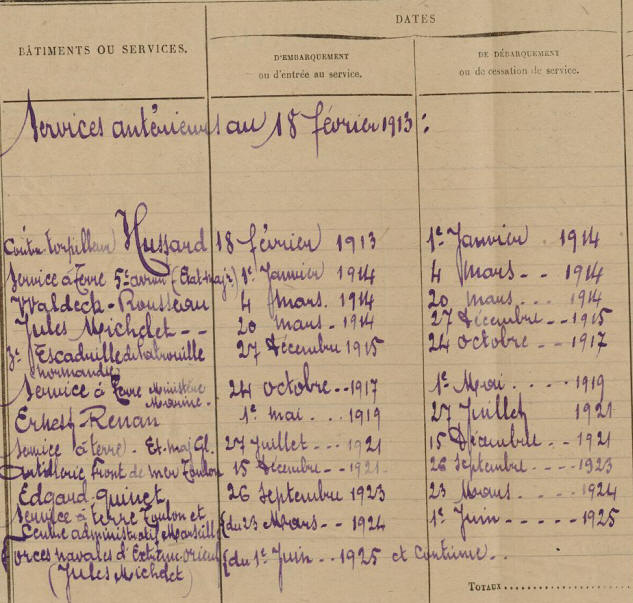 DATES
BÂTIMENTS OU SERVICES.
D'EMBARQUEMENT
ou d'entrée au service.
DE DÉBARQUEMENT
ou de cessation de service.
Services antérieurs au 18 février 1913 :
Contre torpilleur Hussard 18 février 1913 1er Janvier . 1914
Service à terre 5e arron (Etat-major) 1er Janvier 1914 4 Mars - - 1914
Waldeck-Rousseau 4 Mars . 1914 20 mars - - 1914
Jules Michelet - - 20 mars - 1914 27 Décembre - - 1915
3e Escadrille de Patrouille 27 Décembre 1915 24 octobre - - 1917
Normandie
Service à terre Ministère 24 octobre - - 1917 1er Mai . . . 1919
Marine -
Ernest-Renan 1er mai . . . 1919 27 Juillet 1921
Service à terre - Et-maj Gl. 27 Juillet - - - 1921 15 Décembre - - 1921
Artillerie Front de mer Toulon 15 Décembre - - 1921 26 Septembre . . . 1923
Edgard-quinet, 26 Septembre 1923 23 Mars - - - 1924
Service à terre Toulon et
Centre administratif Marseille {du 23 Mars - - 1924 1er Juin - - - - - 1925
Forces navales d'Extrême orient {du 1er Juin - - 1925 et Continue - -
(Jules Michelet)
TOTAUX